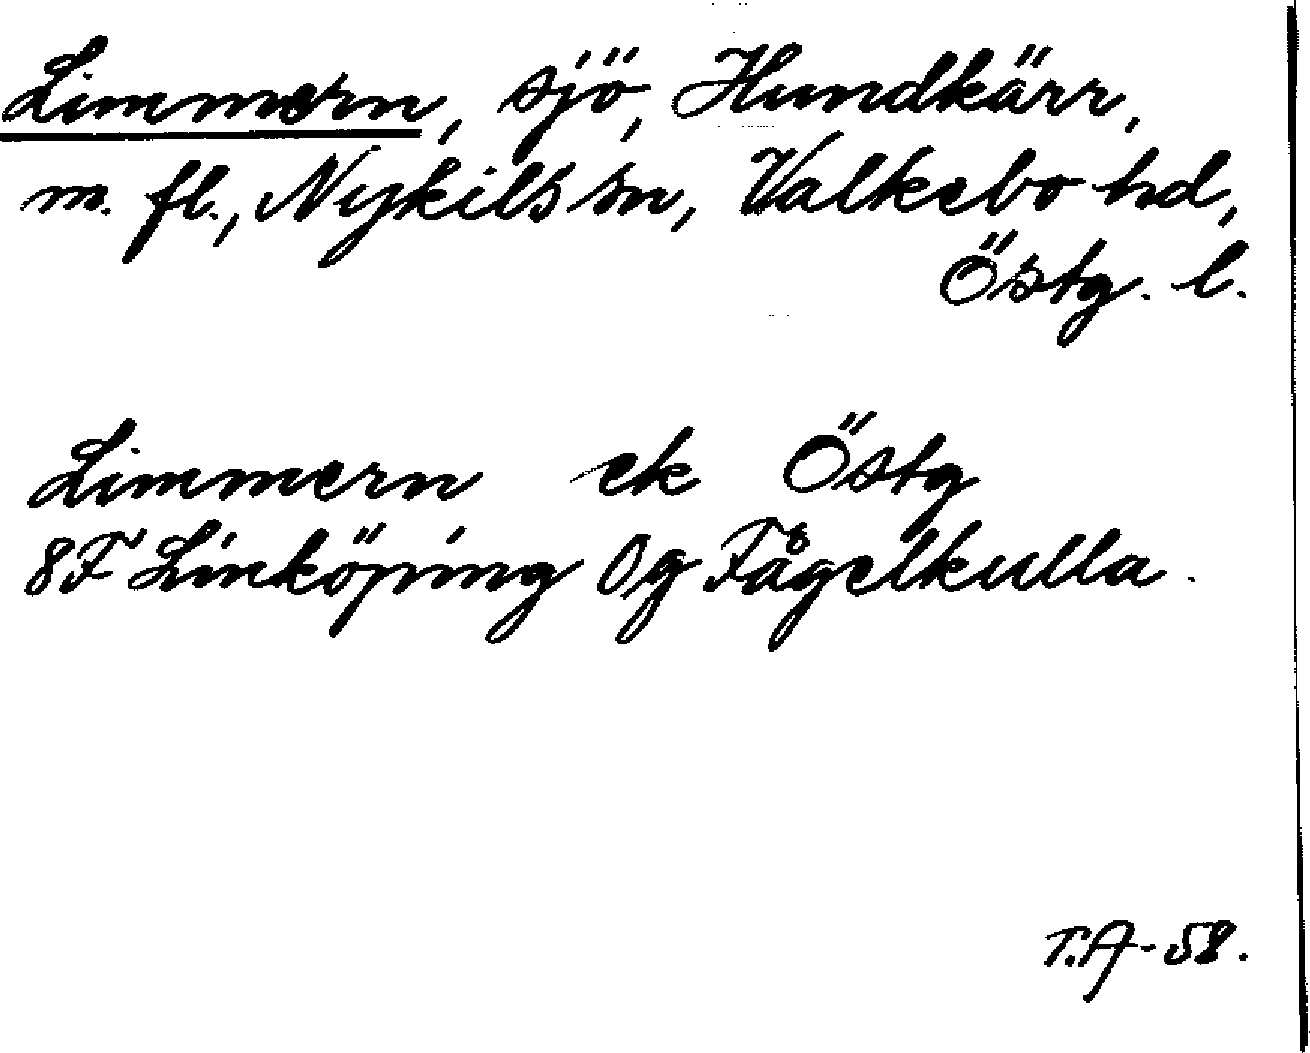 Limmern, sjö, Hundkärr,
m. fl., Nykils sn, Valkebo hd,
Östg. l.
Limmern ek Östg
8F Linköping 0g Fågelkulla.
T.A-58.